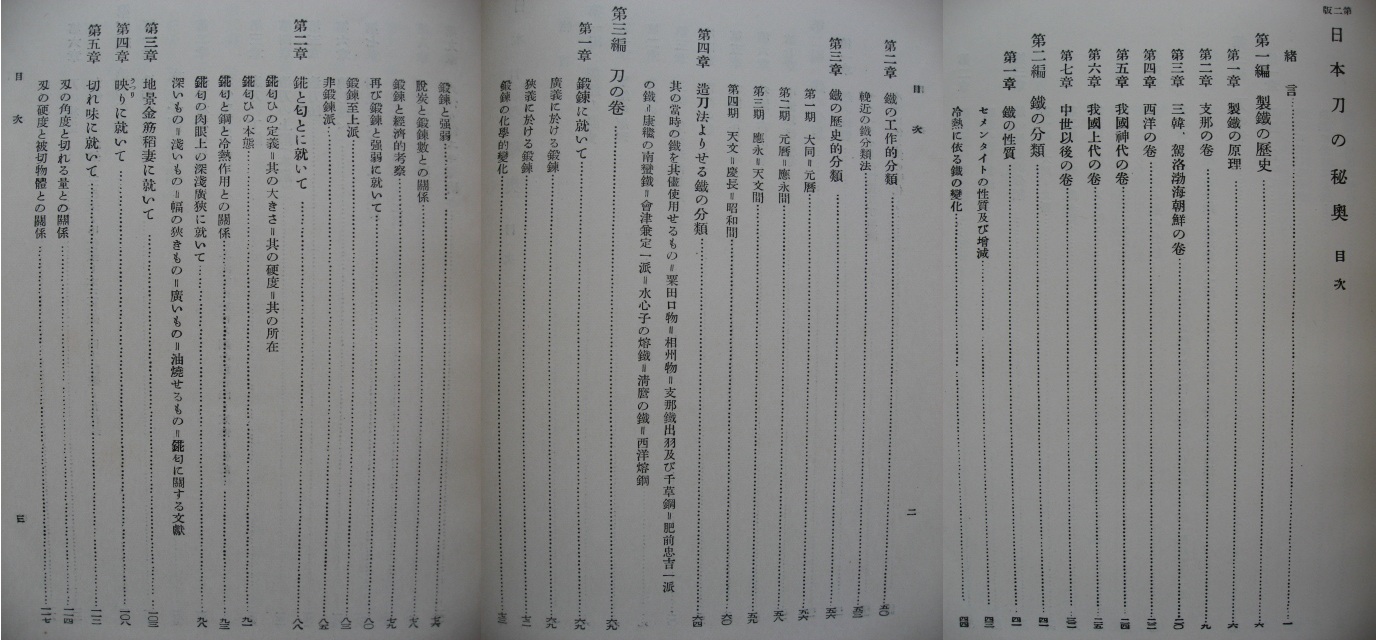 第二版
日本刀の秘奧 目次
緒言 一
第一編 製鐵の歷史 六
第一章 製鐵の原理 六
第二章 支那の卷 九
第三章 三韓、駕洛渤海朝鮮の卷 二〇
第四章 西洋の卷 二一
第五章 我國神代の卷 二四
第六章 我國上代の卷 二五
第七章 中世以後の卷 三一
第二編 鐵の分類 四一
第一章 鐵の性質 四一
セメンタイトの性質及び增減 四三
冷熱に依る鐵の變化 四四
目次
第二章 鐵の工作的分類 五〇
輓近の鐵分類法 五三
第三章 鐵の歷史的分類 五六
第一期 大同=元曆
第二期 元曆=應永間
第三期 應永=天文間 五九
第四期 天文=慶長=昭和間 六〇
第四章 造刀法よりせる鐵の分類 六四
其の當時の鐵を其儘使用せるもの=粟田口物=相州物=支那鐵出羽及び千草鋼=肥前忠吉一派
の鐵=康繼の南蠻鐵=會津兼定一派=水心子の熔鐵=淸麿の鐵=西洋熔鋼
第三編 刀の卷 六九
第一章 鍛鍊に就いて 六九
廣義に於ける鍛鍊
狹義に於ける鍛鍊
鍛鍊の化學的變化
二
鍛鍊と强弱
脫炭と鍛鍊數との關係
鍛鍊と經濟的考察 七九
再び鍛鍊と强弱に就いて 八〇
鍛鍊至上派 八三
非鍛鍊派 八五
第二章 錵と匂とに就いて 八八
錵匂ひの定義=其の大きさ=其の硬度=其の所在
錵匂ひの本態 九一
錵匂と鋼と冷熱作用との關係 九三
錵匂の肉眼上の深淺廣狹に就いて 九八
深いもの=淺いもの=幅の狹きもの=廣いもの=油燒せるもの=錵匂に關する文獻
第三章 地景金筋稻妻に就いて 一〇三
第四章 映りに就いて 一〇八
うつり
第五章 切れ味に就いて 一一二
刄の角度と切れる量との關係 一一四
刄の硬度と被切物體との關係 一一七
目次
三